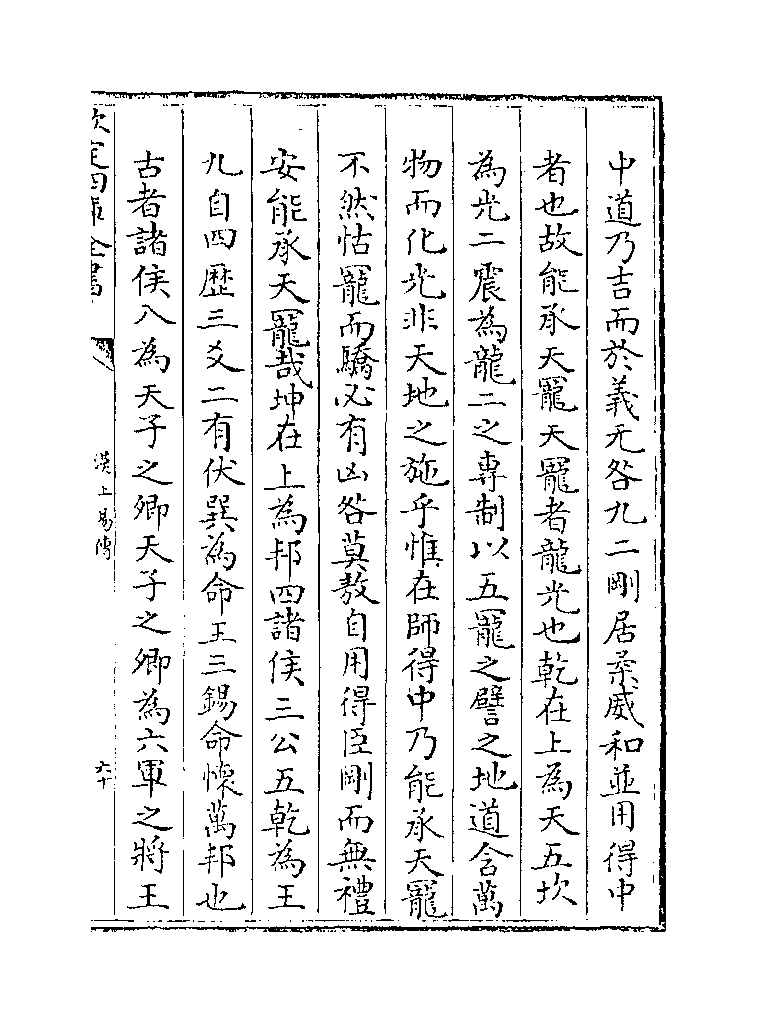 中道乃吉而於義无咎九二剛居柔威和並用得中
者也故能承天寵天寵者龍光也乾在上為天五坎
為光二震為龍二之專制以五寵之譬之地道含萬
物而化光非天地之施乎惟在師得中乃能承天寵
不然怙寵而驕必有凶咎莫敖自用得臣剛而無禮
安能承天寵哉坤在上為邦四諸侯三公五乾為王
九自四歷三爻二有伏巽為命王三錫命懷萬邦也
古者諸侯入為天子之卿天子之卿為六軍之將王
欽定四庫全書
漢上易傳
六十